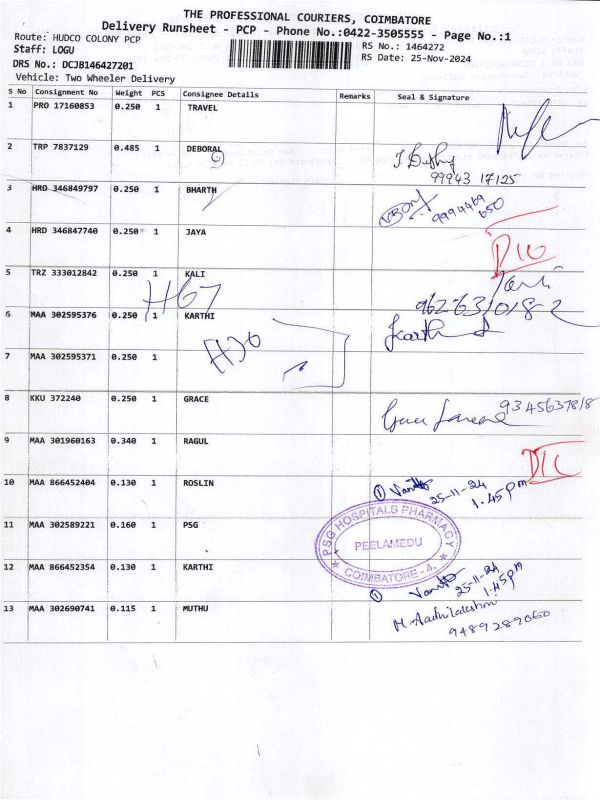 THE PROFESSIONAL COURIERS, COIMBATORE
Delivery Runsheet - PCP - Phone No.:0422-3505555 - Page No.:1
Route: HUDCO COLONY PCP
RS No.: 1464272
Staff: LOGU
RS Date: 25-Nov-2024
DRS No.: DCJB146427201
Vehicle: Two Wheeler Delivery
S No Consignment No Weight PCS Consignee Details Remarks Seal & Signature
1 PRO 17160853 0.250 1 TRAVEL
2 TRP 7837129 0.485 1 DEBORAL
99943 17125
3 HRD 346849797 0.250 1 BHARTH
9994469
650
4 HRD 346847740 0.250 1 JAYA
5 TRZ 333012842 0.250 1 KALI
H67
6 MAA 302595376 0.250 1 KARTHI
7 MAA 302595371 0.250 1
8 KKU 372240 0.250 1 GRACE
9345637818
9 MAA 301960163 0.340 1 RAGUL
10 MAA 866452404 0.130 1 ROSLIN
25-11-24
1.45pm
11 MAA 302589221 0.160 1 PSG
PSG HOSPITALS PHARMACY
PEELAMEDU
COIMBATORE - 4.
12 MAA 866452354 0.130 1 KARTHI
25-11-24
1.45pm
13 MAA 302690741 0.115 1 MUTHU
9489289060